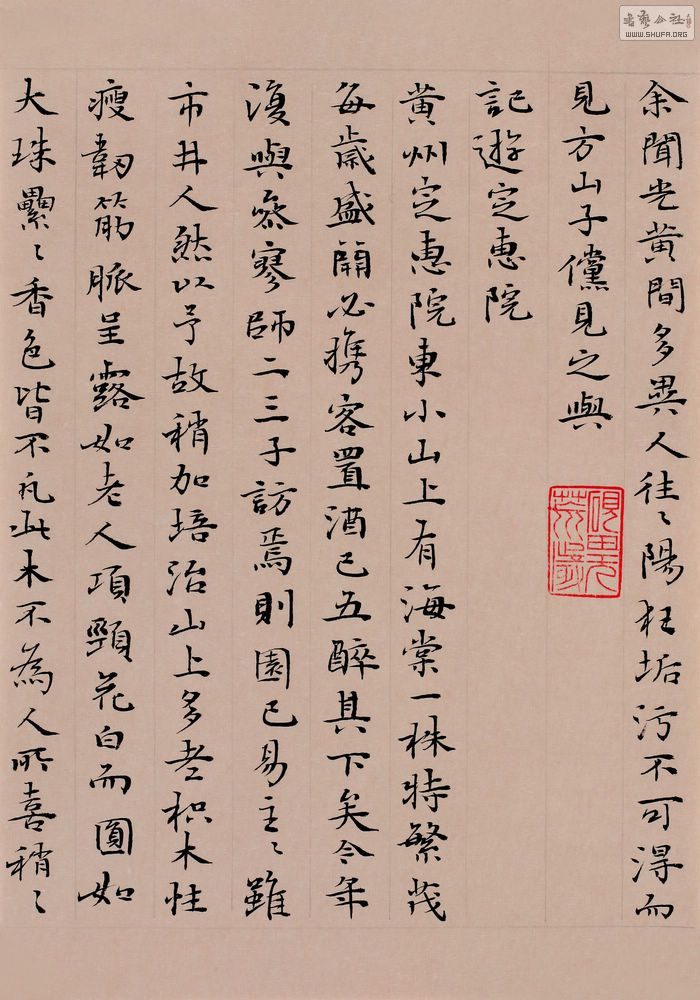 余聞光黄間多異人往〻陽狂垢污不可得而
見方山子儻見之與
記遊定惠院
黄州定惠院東小山上有海棠一株特繁茂
每歳盛開必携客置酒已五醉其下矣今年
復與叅寥師二三子訪焉則園已易主〻雖
市井人然以予故稍加培治山上多老枳木性
瘦韌筋脈呈露如老人項頸花白而圓如
大珠纍〻香色皆不凡此木不為人所喜稍〻
書法公社
WWW.SHUFA.ORG